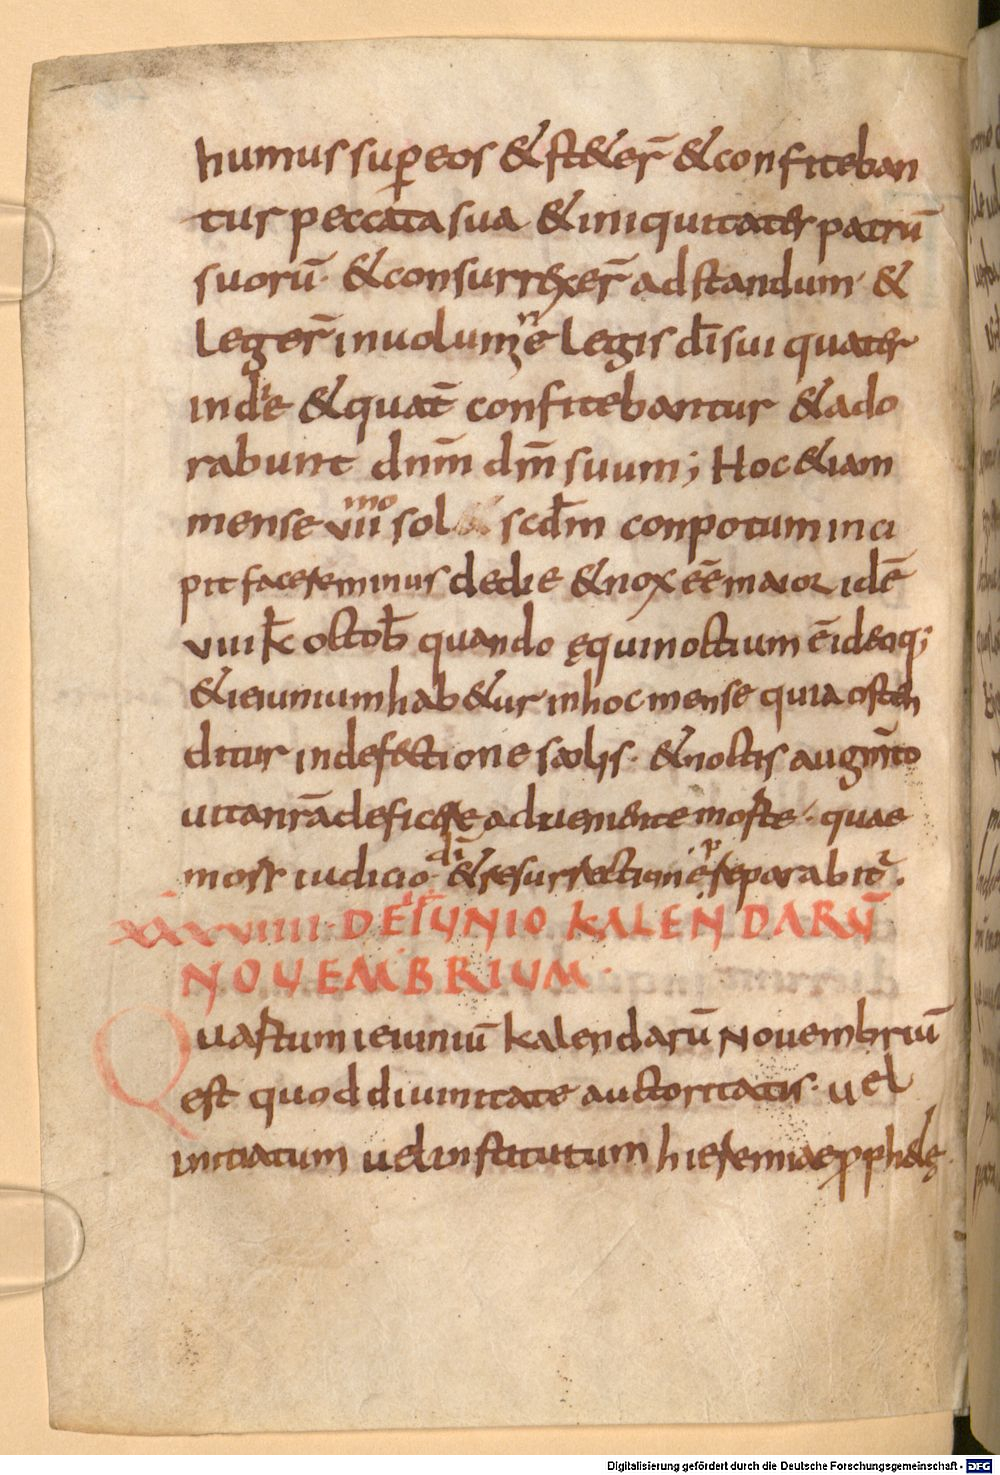 humus sup eos & st&er̄ & confiteban
tur peccata sua & iniquitates patrū
suorū · & consurrexer̄ ad standum · &
leger̄ in uolumine legis dī sui quater
in die & quat̄ confitebantur & ado
rabunt dnm̄ dm̄ suum ; Hoc &iam
mense viiimo sol scdm̄ conpotum inci
pit facere minus de die & nox eē maior idē
viiii k̄ octob̄ quando ęquinoctium ē ideoq;
& ieiunium hab&ur in hoc mense quia osten
ditur in defectione solis · & noctis augm̄to
uitā nrā deficere adueniente morte · quae
mors iudicio dī & resurrectione reparabit̄ ·
xxxviiii · DE IEIUNIO KALENDARŪ
NOUEMBRIUM ·
Quartum ieiuniū kalendarū Nouembriū
est quod diuinitate auctoritatis · uel
initiatum uel institutum hieremiae pph&ę
Digitalisierung gefördert durch die Deutsche Forschungsgemeinschaft - DFG